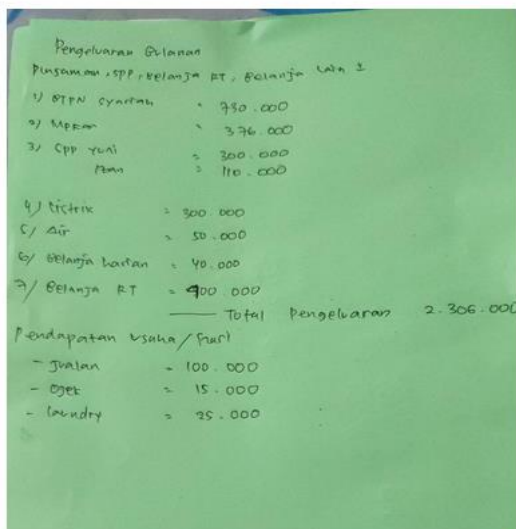 Pengeluaran Bulanan
Pinjaman, SPP, Belanja RT, Belanja Lain 2
1) BTPN Syariah = 730.000
2) Mekar = 376.000
3) SPP Yuni = 300.000
= 110.000
4) Listrik = 300.000
5) Air = 50.000
6) Belanja harian = 40.000
7) Belanja RT = 400.000
Total Pengeluaran 2.306.000
Pendapatan usaha/hari
- Jualan = 100.000
- Ojek = 15.000
- laundry = 25.000